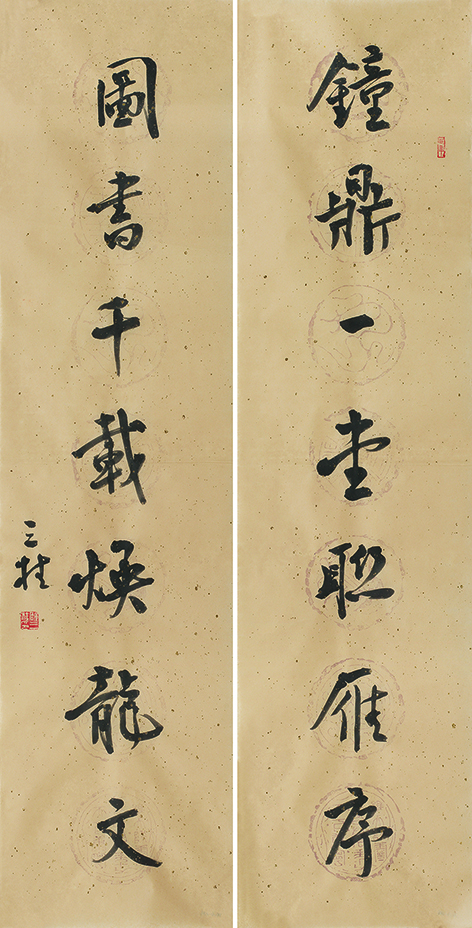 鐘鼎一堂聯雁序
圖書千載煥龍文
三桂